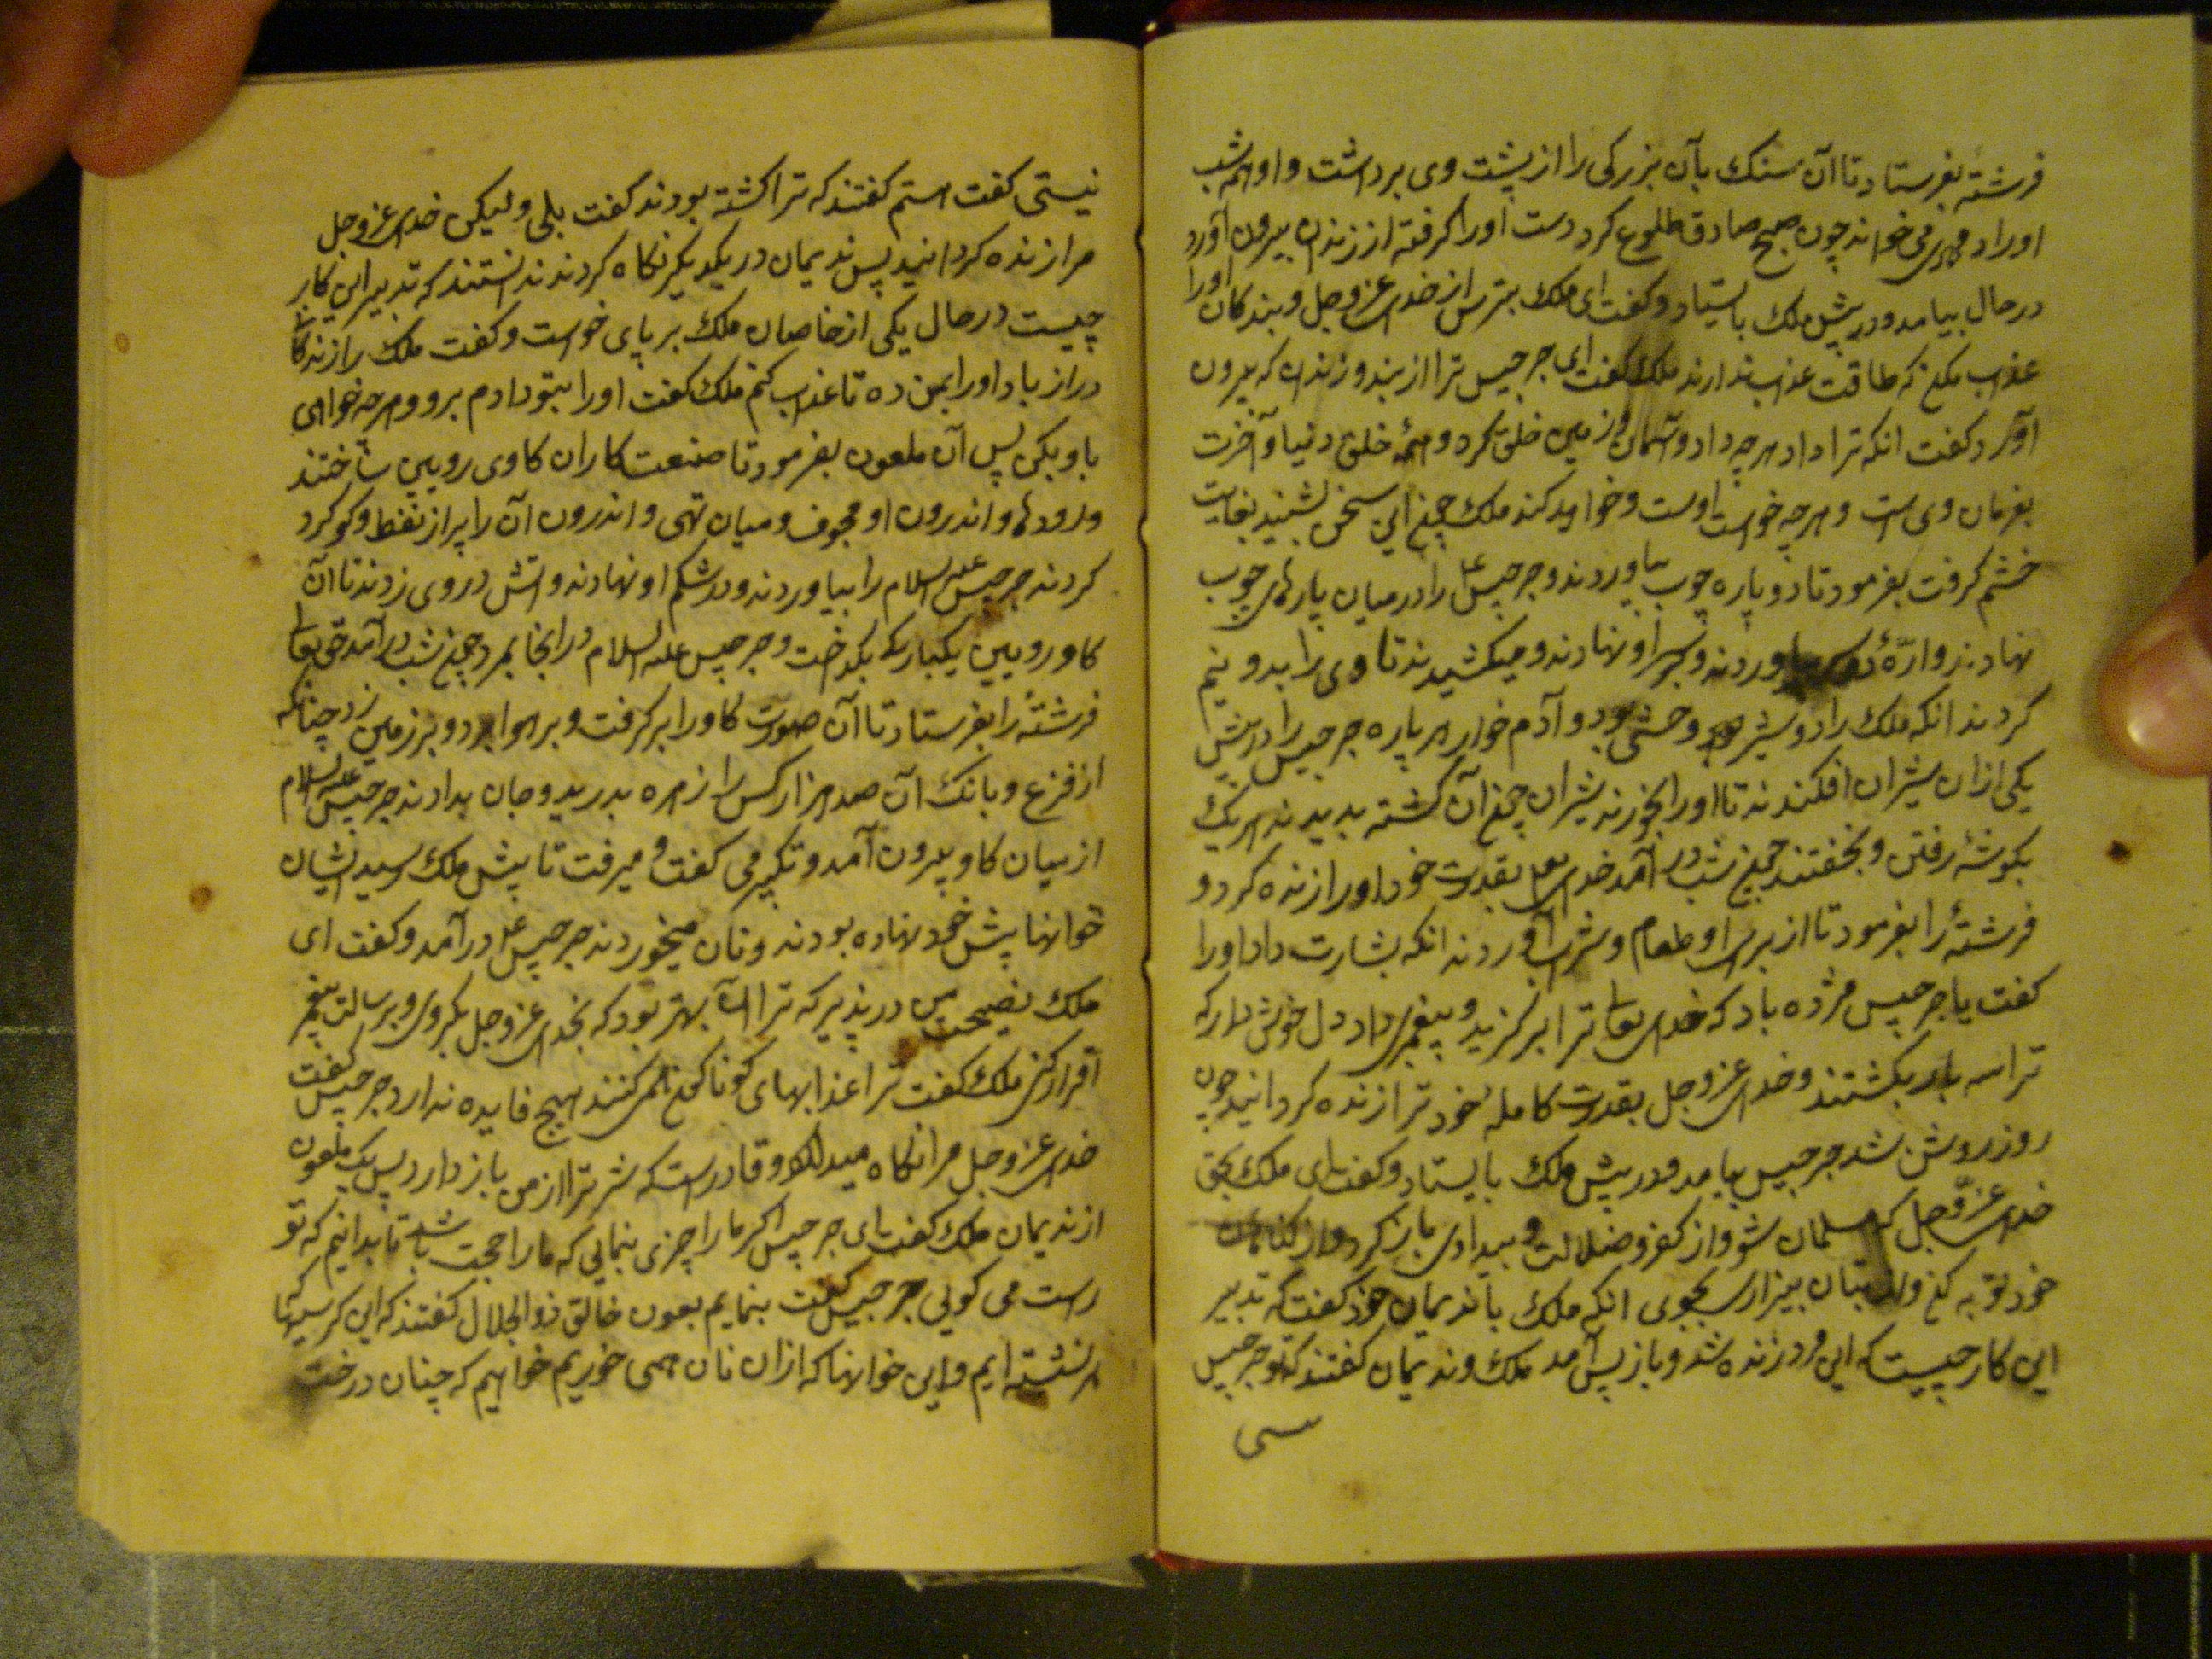 فرشته بفرستاد تا آن سنک بآن بزرکی را از پشت وی برداشت و او همه شب
اوراد می خواند چون صبح صادق طلوع کرد دست اورا کرفته از زندان بیرون آورد
در حال بیامد و در پیش ملک بایستاد و کفت ای ملک بترس از خدای عز و جل و بندکان اورا
عذاب مکن که طاقت عذاب ندارند ملک کفت ای جرجیس ترا از بند و زندان که بیرون
آورد کفت انکه ترا داد هرچه داد و آسمان و زمین خلق کرد و همهٔ خلق دنیا و آخرت
بفرمان وی است و هرچه خواست اوست و خواهد کند ملک چون این سخن بشنید بغایت
خشم کرفت بفرمود تا دو پاره چوب بیاوردند و جرجیس ع را در میان پارهای چوب
نهادند و ارّهٔ بیاوردند و بر سر او نهادند و میکشیدند تا وی را بدو نیم
کردند انکه ملک را دو شیر وحشی بود و آدم خوار هر پاره جرجیس را در پیش
یکی ازان شیران افکندند تا اورا بخورند شیران چون آن کشته بدیدند هر یک
بکوشهٔ رفتن و بخفتند چون شب در آمد خدای تع بقدرت خود اورا زنده کرد و
فرشتهٔ را بفرمود تا از برای او طعام و شراب آوردند انکه بشارت داد اورا
کفت یا جرجیس مژده باد که خدای تعالی ترا برکزید و پیغمبری داد دل خوش دار که
ترا سه بار بکشتند و خدای عز و جل بقدرت کامله خود ترا زنده کردانید چون
روز روشن شد جرجیس بیامد و در پیش ملک بایستاد و کفت ای ملک بحق
خدای عزّ و جل که مسلمان شو و از کفر و ضلالت و بیدادی باز کرد و از کناهان
خود توبه کن و از بتان بیزار بجوی انکه ملک با ندیمان خود کفت که تدبیر
این کار چیست که این مرد زنده شد و باز پس آمد ملک و ندیمان کفتند که تو جرجیس
نیستی کفت هستم کفتند که ترا کشته بودند کفت بلی ولیکن خدای عز و جل
مرا زنده کردانید پس ندیمان در یکدیکر نکاه کردند ندانستند که تدبیر این کار
چیست در حال یکی از خاصان ملک بر پای خواست و کفت ملک را زندکانی
دراز باد اورا بمن ده تا عذاب کنم ملک کفت اورا بتو دادم برو و هرچه خواهی
با او بکن پس آن ملعون بفرمود تا صنعت کاران کاوی رویین ساختند
و رودها و اندرون او مجوف و میان تهی و اندرون آن را پر از نفط و کوکرد
کردند جرجیس علیه السلام را بیاوردند و در شکم او نهادند و اتش در وی زدند تا آن
کاو رویین یکبارکه بکداخت و جرجیس علیه السلام در انجا بمرد چون شب در آمد حق تعالی
فرشتهٔ را بفرستاد تا آن صورت کاو را بر کرفت و بر هوا برد و بر زمین زد چنانکه
از فزع و بانک آن صد هزار کس را زهره بدرید و جان بدادند جرجیس علیه السلام
از میان کاو بیرون آمد و تکبیر می کفت و میرفت تا پیش ملک رسید ایشان
خوانها پیش خود نهاده بودند و نان میخوردند جرجیس ع در آمد و کفت ای
ملک نصیحت من در پذیر که ترا آن بهتر بود که بخدای عز و جل بکروی و برسالت پیغمبر
اقرار کنی ملک کفت ترا عذابهای کوناکون می کنند هیچ فایده ندارد جرجیس کفت
خدای عز و جل مرا نکاه میدارد و قادر است که شر ترا از من باز دارد پس یک ملعون
از ندیمان ملک کفت ای جرجیس اکر ما را چیزی بنمایی که ما را حجت باشد تا بدانیم که تو
راست می کویی جرجیس کفت بنمایم بعون خالق ذو الجلال کفتند که این کرسیها
نشسته ایم و این خوانها که ازان نان همی خوریم خواهیم که چنان درخت